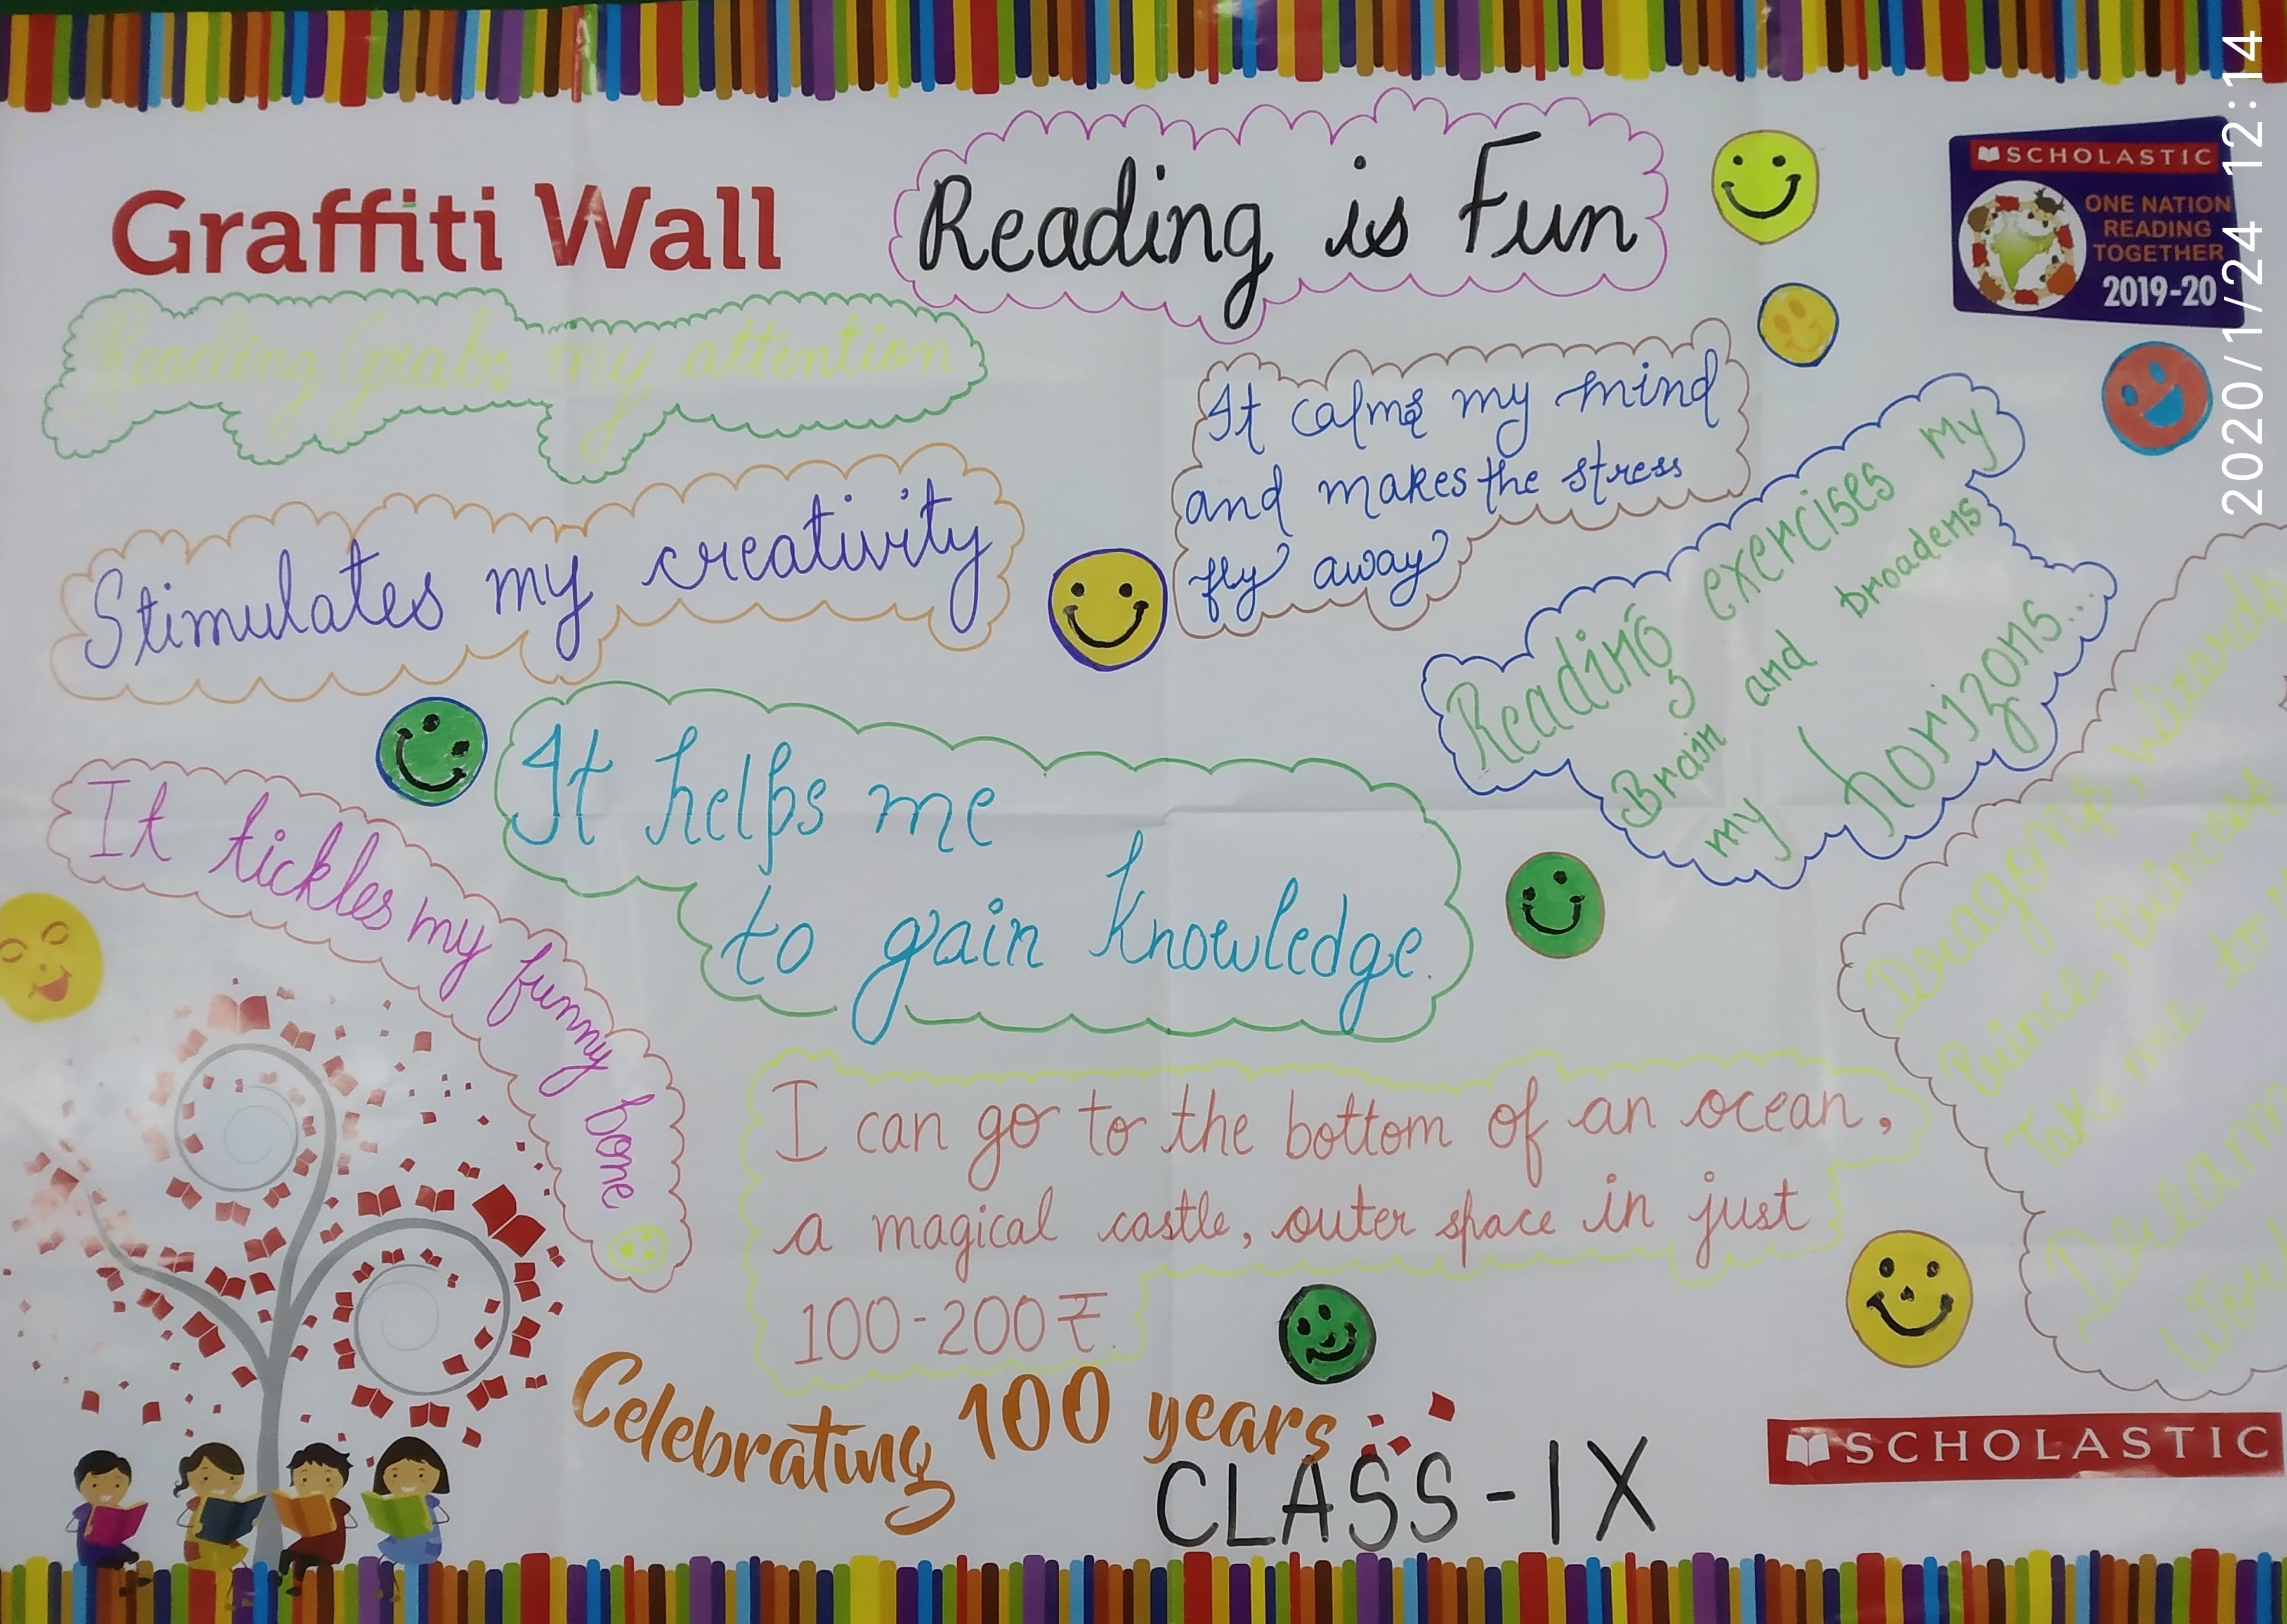 Graffiti Wall
Reading is Fun
SCHOLASTIC
ONE NATION
READING
TOGETHER
2019-20
2020/1/24 12:14
Reading Grabs my attention
It calms my mind
and makes the stress
fly away
Stimulates my creativity
Reading exercises my
Brain and broadens
my horizons...
It helps me
to gain knowledge.
It tickles my funny bone
Dragons, wizards
Prince, Princess
Take me to
I can go to the bottom of an ocean,
a magical castle, outer space in just
100-200₹.
Celebrating 100 years
CLASS-IX
SCHOLASTIC